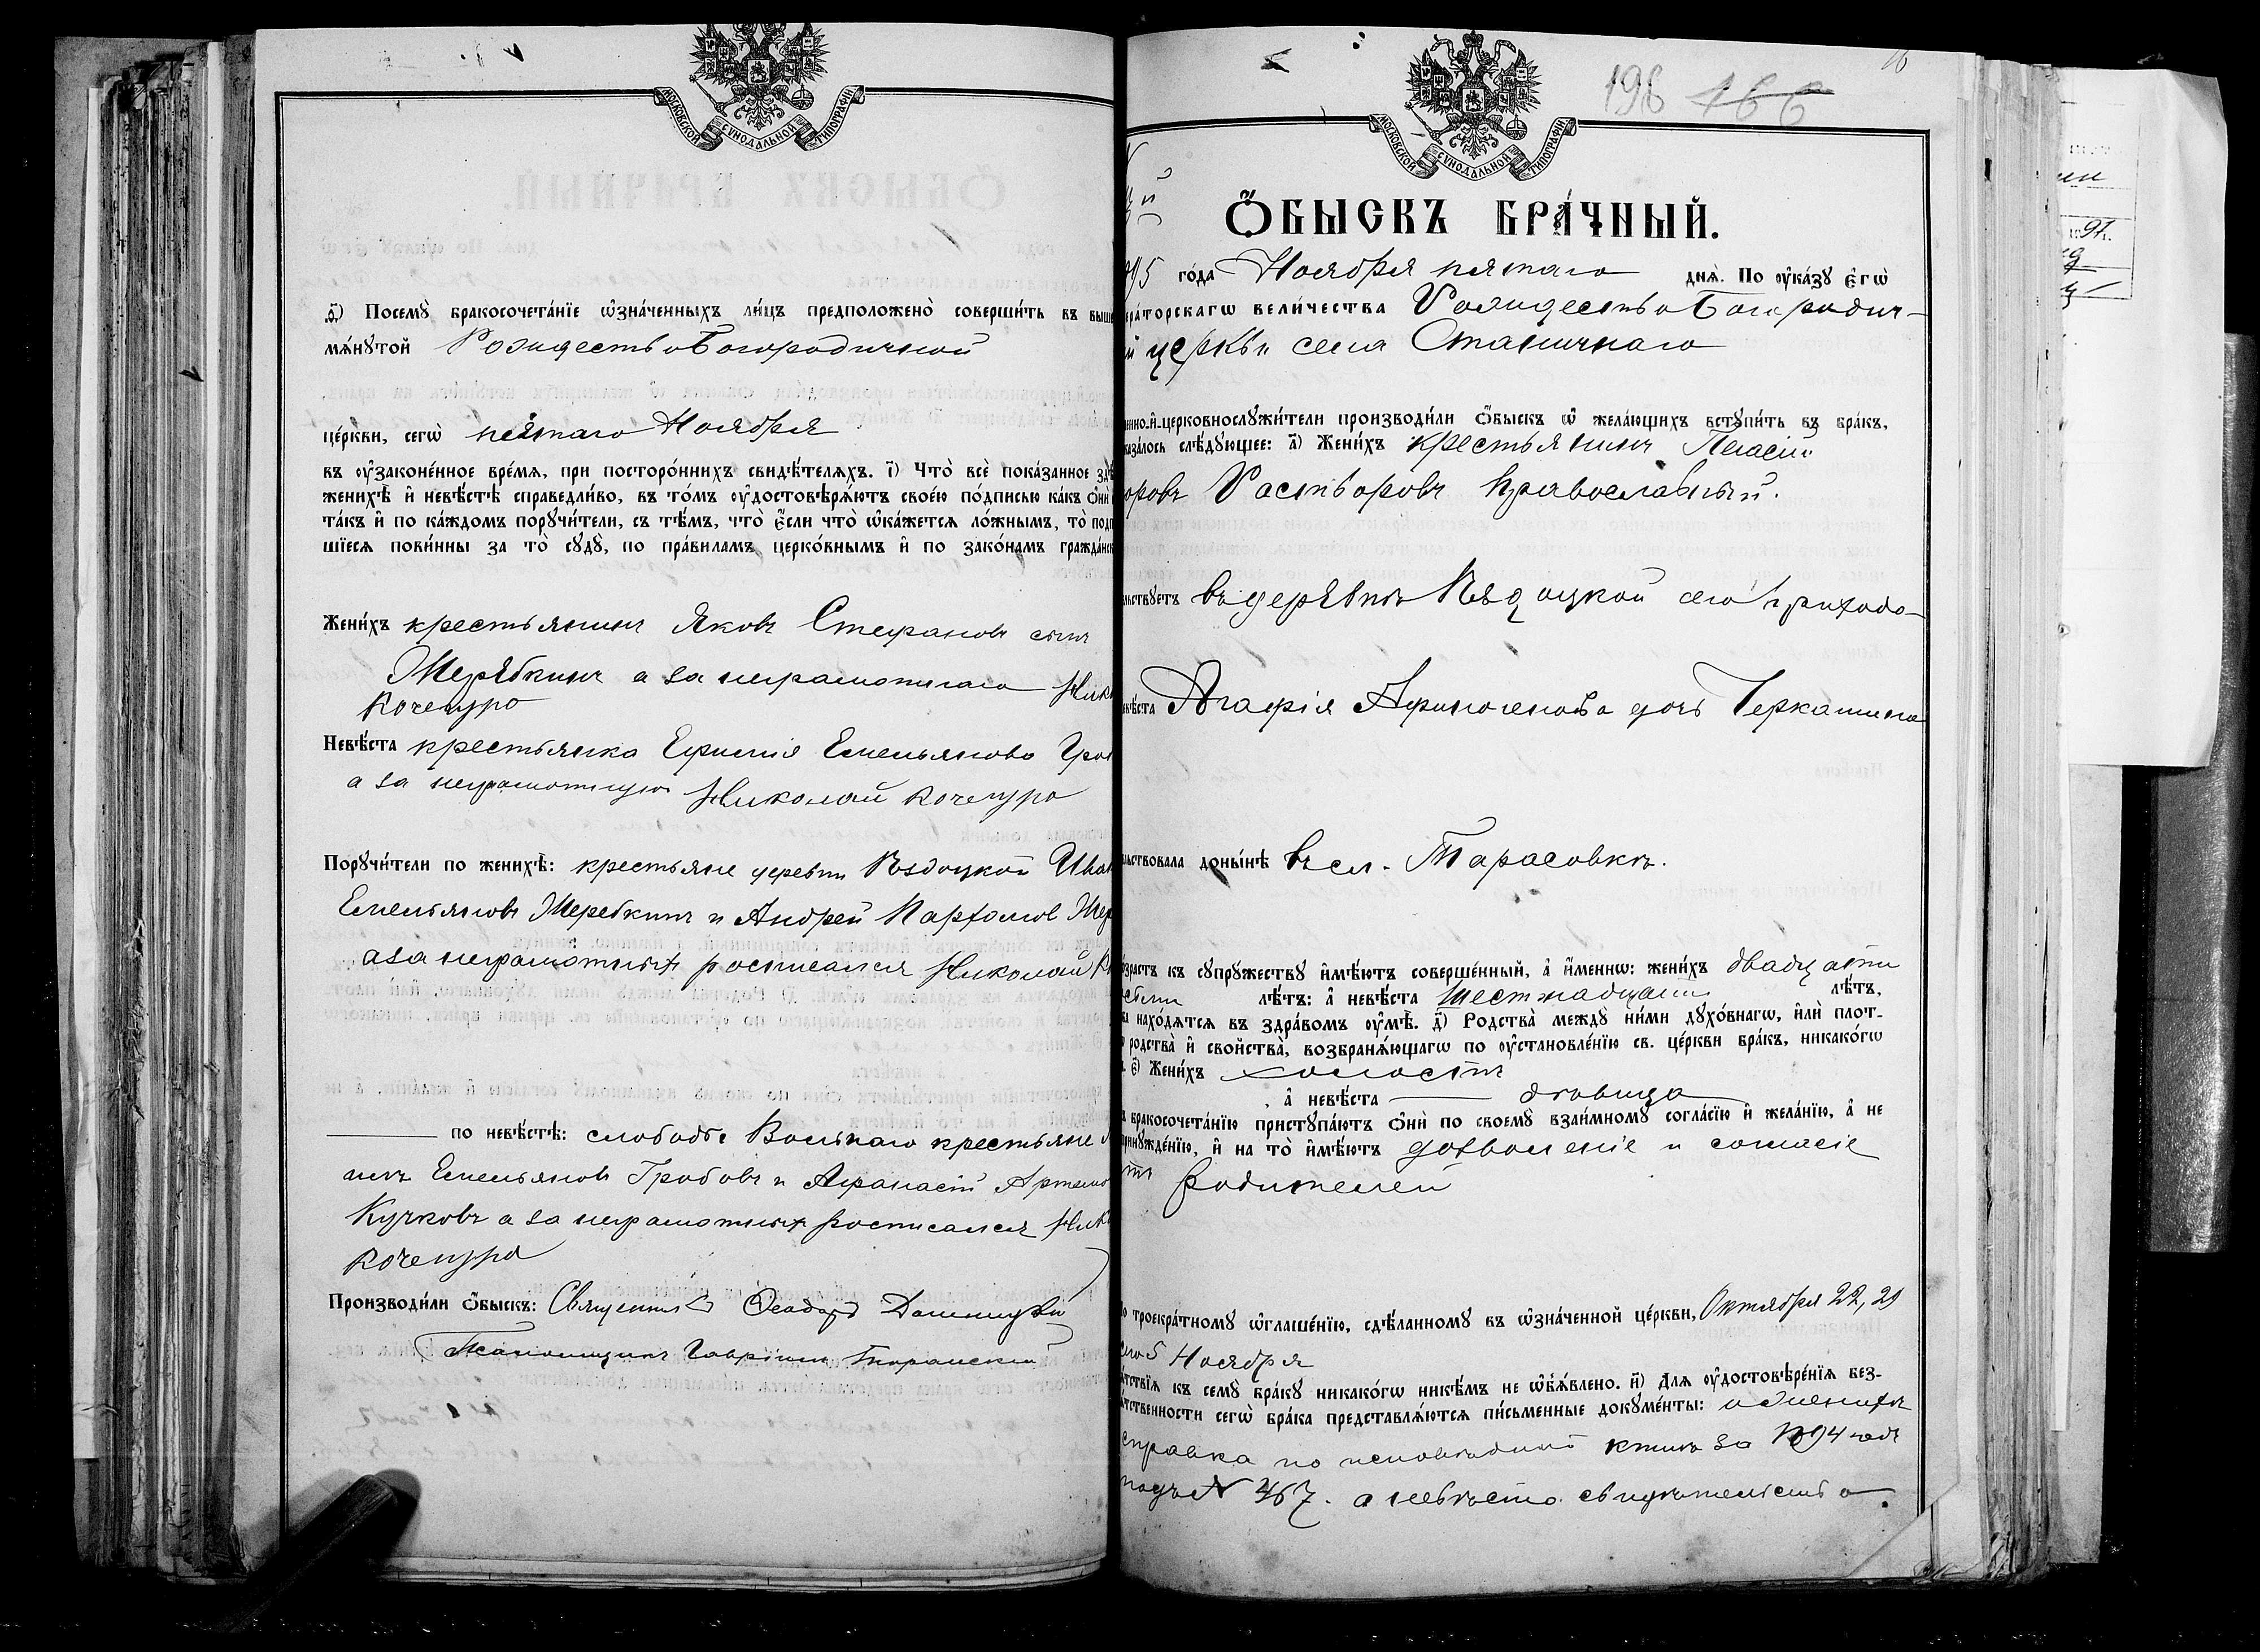 МОСКОВСКОЙ СУНОДАЛЬНОЙ ТИПОГРАФІИ
д҃) Посемꙋ̀ бракосочета́нїе ѡ҆зна́ченныхъ ли́цъ предположено̀ соверши́ть въ выше
мѧ́нꙋтой Рождество Богородичной
це́ркви, сегѡ̀ пятаго Ноября
въ ᲂу҆зако́ненное вре́мѧ, при посторо́ннихъ свидѣ́телѧхъ. і҃) Что̀ всѐ пока́занное здѣ
женихѣ̀ и҆ невѣ́стѣ справедли́во, въ то́мъ ᲂу҆достовѣрѧ́ютъ свое́ю по́дписью ка́къ ѻ҆нѝ
та́къ и҆ по ка́ждомъ порꙋчи́тели, съ тѣ́мъ, что̀ є҆́сли что̀ ѡ҆ка́жетсѧ ло́жнымъ, то̀ подп
шїесѧ пови́нны за то̀ сꙋдꙋ̀, по пра́виламъ церко́внымъ и҆ по зако́намъ гражда́нск
Жени́хъ крестьянинъ Яковъ Стефановъ сынъ
Жеребкинъ а за неграмотнаго Ник
Кочепуро
Невѣ́ста крестьянка Ефимія Емельянова Гро
а за неграмотную Николай Кочепуро
Порꙋчи́тели по женихѣ̀: крестьяне деревни Нздоцкой Ива
Емельяновъ Жеребкинъ и Андрей Парфомов Жер
а за неграмотныхъ росписался Николай К
по невѣ́стѣ: слободы Вольнаго крестьяне
Емельяновъ Гробовъ и Афанасій Артемо
Кучковъ а за неграмотныхъ росписался Ник
Кочепура
Производи́ли ѻ҆́быскъ: Священникъ Ѳеодоръ
Псаломщикъ Гавріилъ
МОСКОВСКОЙ СУНОДАЛЬНОЙ ТИПОГРАФІИ
196 166
Ѻ҆́БЫСКЪ БРА́ЧНЫЙ.
95 го́да Ноября пятаго днѧ̀. По ᲂу҆ка́зꙋ є҆гѡ̀
ера́торскагѡ вели́чества Рождество Богородич-
й церкви села Станичнаго
енно-и҆-церковнослꙋжи́тели производи́ли ѻ҆́быскъ ѡ҆ жела́ющихъ встꙋпи́ть въ бра́къ,
каза́лось слѣ́дꙋющее: а҃) Жени́хъ крестьянинъ
оровъ Растворовъ православный.
льствꙋетъ въ деревнѣ сего прихода
евѣ́ста Агафія Афиногенова дочь Черкашина
льствовала доны́нѣ въ сл. Тарасовкѣ.
о́зрастъ къ сꙋпрꙋжествꙋ и҆мѣ́ютъ соверше́нный, а҆ и҆́меннѡ: жени́хъ двадцати
лѣ́тъ: а҆ невѣ́ста шестнадцати лѣ́тъ,
ба нахо́дѧтсѧ въ здра́вомъ ᲂу҆мѣ̀. д҃) Родства̀ междꙋ̀ ни́ми дꙋхо́внагѡ, и҆лѝ плот-
родства̀ и҆ сво́йства, возбранѧ́ющагѡ по ᲂу҆становле́нїю св. це́ркви бра́къ, никако́гѡ
є҃) Жени́хъ холостъ
а҆ невѣ́ста дѣвица
ъ бракосочета́нїю пристꙋпа́ютъ ѻ҆нѝ по своемꙋ̀ взаи́мномꙋ согла́сїю и҆ жела́нїю, а҆ не
принꙋжде́нїю, и҆ на то̀ и҆мѣ́ютъ дозволеніе и согласіе
родителей
о троекра́тномꙋ ѡ҆глаше́нїю, сдѣ́ланномꙋ въ ѡ҆зна́ченной це́ркви, Октября 22, 29
5 Ноября
ѧ́тствїѧ къ семꙋ̀ бра́кꙋ никако́гѡ никѣ́мъ не ѡ҆б̾ѧ́влено. и҃) Длѧ̀ ᲂу҆достовѣре́нїѧ без-
ѧ́тственности сегѡ̀ бра́ка представлѧ́ютсѧ пи́сьменные докꙋме́нты: о женихѣ
справка по исповѣдной книгѣ за 1894 годъ
подъ № 467. а невѣста свидѣтельство.